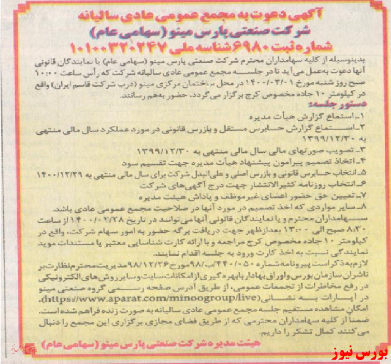 آگهی دعوت به مجمع عمومی عادی سالیانه
شرکت صنعتی پارس مینو (سهامی عام)
شماره ثبت ۶۹۸۰ شناسه ملی ۱۰۱۰۰۳۲۰۲۴۷
بدینوسیله از کلیه سهامداران محترم شرکت صنعتی پارس مینو (سهامی عام) یا نمایندگان قانونی
آنها دعوت به‌عمل می‌آید تا در جلسه مجمع عمومی عادی سالیانه شرکت که رأس ساعت ۱۰:۰۰
صبح روز شنبه مورخ ۱۴۰۰/۰۳/۰۱ در محل ساختمان مرکزی مینو (درب شرکت قاسم ایران) واقع
در کیلومتر ۱۰ جاده مخصوص کرج برگزار می‌گردد، حضور بهم رسانند.
دستور جلسه:
۱-استماع گزارش هیأت مدیره
۲-استماع گزارش حسابرس مستقل و بازرس قانونی در مورد عملکرد سال مالی منتهی
به ۱۳۹۹/۱۲/۳۰
۳-تصویب صورتهای مالی سال مالی منتهی به ۱۳۹۹/۱۲/۳۰
۴-اتخاذ تصمیم پیرامون پیشنهاد هیأت مدیره جهت تقسیم سود
۵-انتخاب حسابرس قانونی و بازرس اصلی و علی‌البدل شرکت برای سال مالی منتهی به ۱۴۰۰/۱۲/۲۹
۶-انتخاب روزنامه کثیرالانتشار جهت درج آگهی‌های شرکت
۷-تعیین حق حضور اعضای غیرموظف و پاداش هیئت مدیره
۸-سایر مواردی که اخذ تصمیم در مورد آنها در صلاحیت مجمع عمومی عادی باشد.
سهامداران محترم و یا نمایندگان قانونی آنها می‌توانند در تاریخ ۱۴۰۰/۰۲/۲۸ از ساعت
۸:۳۰ صبح الی ۱۳:۰۰ بعدازظهر جهت دریافت برگه حضور به امور سهام شرکت، واقع در
کیلومتر ۱۰ جاده مخصوص کرج مراجعه و با ارائه کارت شناسایی معتبر یا مستندات موید
نمایندگی نسبت به اخذ کارت ورود به جلسه اقدام نمایند.
لازم به‌ذکر است پیرو نامه شماره مورخ ۹۸/۱۲/۲۴ مدیریت محترم نظارت بر
ناشران سازمان بورس و اوراق بهادار با بهره‌گیری از امکانات سایت و سایر روش‌های الکترونیکی
در رفع مخاطرات از تجمعات عمومی، از طریق آدرس صفحه رسمی گروه صنعتی مینو
در آپارات به نشانی (https://www.aparat.com/minoogroup/live)،
امکان مشاهده مستقیم جلسه مجمع عمومی عادی سالیانه به صورت زنده فراهم شده است.
ضمناً از کلیه سهامداران محترمی که از طریق فضای مجازی برگزاری این مجمع را دنبال
می‌کنند کمال تشکر را داریم.
هیئت مدیره شرکت صنعتی پارس مینو (سهامی عام)
بورس نیوز